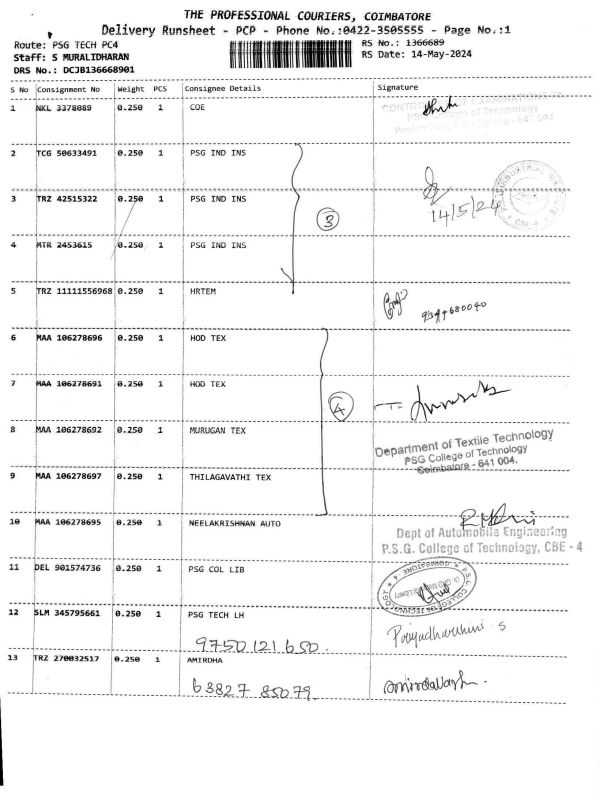 THE PROFESSIONAL COURIERS, COIMBATORE
Delivery Runsheet - PCP - Phone No.:0422-3505555 - Page No.:1
Route: PSG TECH PC4
RS No.: 1366689
Staff: S MURALIDHARAN
RS Date: 14-May-2024
DRS No.: DCJB136668901
S No Consignment No Weight PCS Consignee Details Signature
1 NKL 3378089 0.250 1 COE
PSG College of Technology
- 641 004
2 TCG 50633491 0.250 1 PSG IND INS
3 TRZ 42515322 0.250 1 PSG IND INS
3
14/5/24
4 MTR 2453615 0.250 1 PSG IND INS
5 TRZ 11111556968 0.250 1 HRTEM
6 MAA 106278696 0.250 1 HOD TEX
7 MAA 106278691 0.250 1 HOD TEX
4
8 MAA 106278692 0.250 1 MURUGAN TEX
Department of Textile Technology
PSG College of Technology
Coimbatore - 641 004.
9 MAA 106278697 0.250 1 THILAGAVATHI TEX
10 MAA 106278695 0.250 1 NEELAKRISHNAN AUTO
Dept of Automobile Engineering
P.S.G. College of Technology, CBE - 4
11 DEL 901574736 0.250 1 PSG COL LIB
12 SLM 345795661 0.250 1 PSG TECH LH
9750121650.
Priyadharshini. S
13 TRZ 270032517 0.250 1 AMIRDHA
63827 85079.